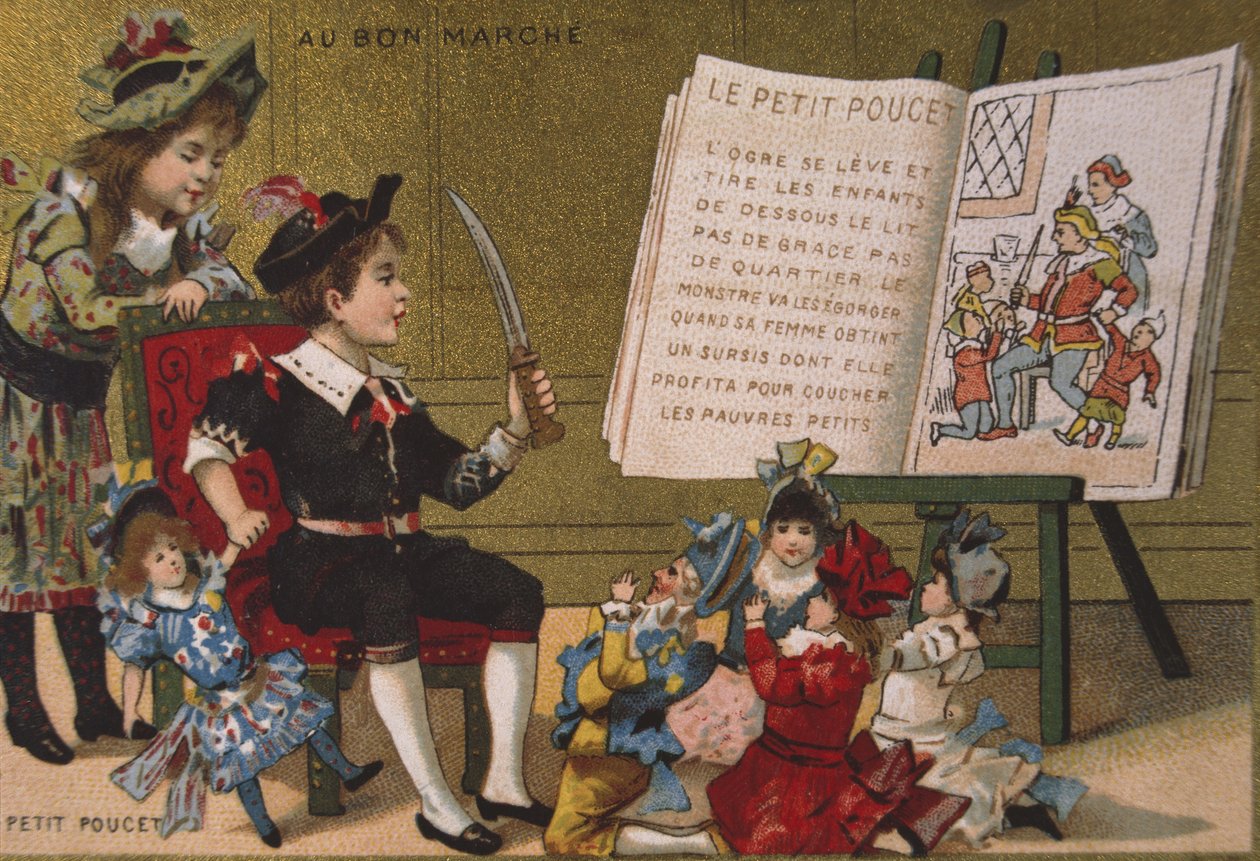 AU BON MARCHÉ
LE PETIT POUCET
L'OGRE SE LÈVE ET
TIRE LES ENFANTS
DE DESSOUS LE LIT
PAS DE GRACE PAS
DE QUARTIER LE
MONSTRE VA LES ÉGORGER
QUAND SA FEMME OBTINT
UN SURSIS DONT ELLE
PROFITA POUR COUCHER
LES PAUVRES PETITS
PETIT POUCET